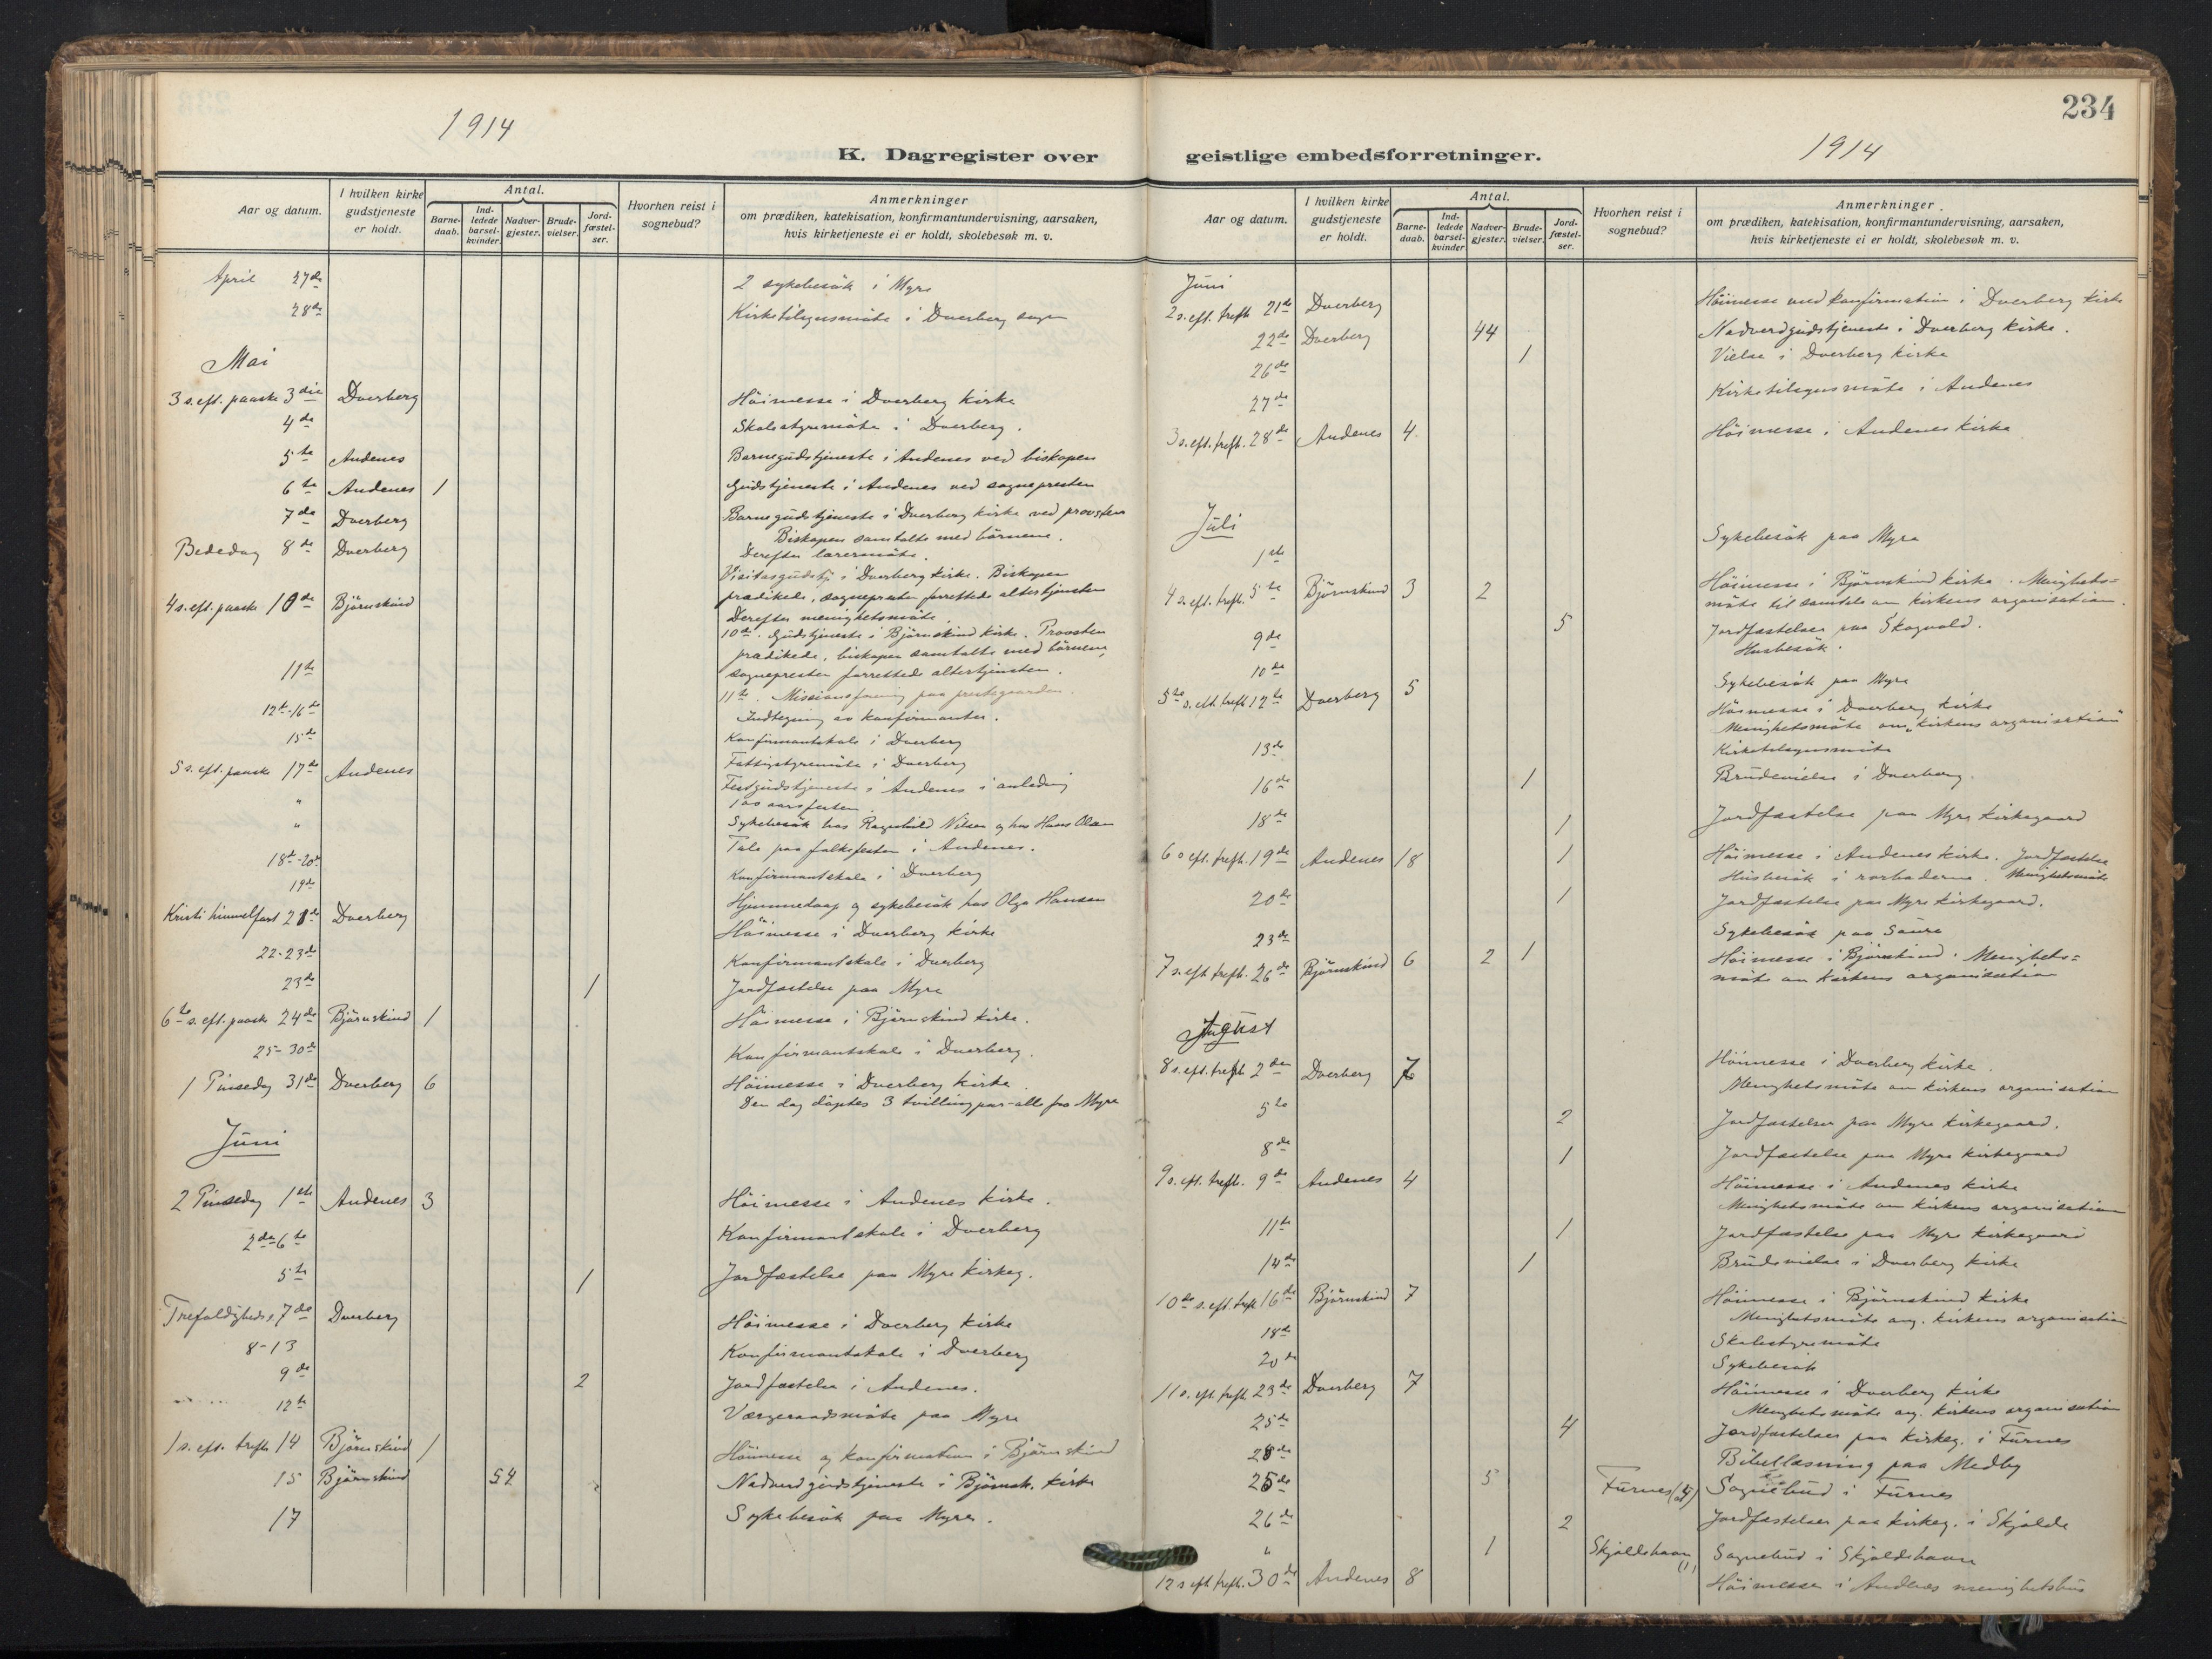 1914
K. Dagregister over
Aar og datum. I hvilken kirke gudstjeneste er holdt. Antal. Barne-daab. Ind-ledede barsel-kvinder. Nadver-gjester. Brude-vielser. Jord-fæstel-ser. Hvorhen reist i sognebud? Anmerkninger om prædiken, katekisation, konfirmantundervisning, aarsaken, hvis kirketjeneste ei er holdt, skolebesøk m. v.
April 27de 2 sykebesök i Myre
28de Kirketilsynsmöte i Dverberg sogn
Mai
3 s. eft. paaske 3die Dverberg Höimesse i Dverberg kirke
4de Skolestyremöte i Dverberg.
5te Andenes Barnegudstjeneste i Andenes ved biskopen
6te Andenes 1 Gudstjeneste i Andenes ved sognepresten
7de Dverberg Barnegudstjeneste i Dverberg kirke ved provsten
Biskopen samtalte med börnene.
Bededag 8de Dverberg Derefter lærermöte.
Visitasgudstj. i Dverberg kirke. Biskopen
prædikede, sognepresten forrettede altertjenesten
4 s. eft. paaske 10de Björnskind Derefter menighetsmöte
10de. Gudstjeneste i Björnskind kirke. Provsten
prædikede, biskopen samtalte med börnene,
sognepresten forrettede altertjenesten.
11te 11te. Missionsforening paa prestegaarden.
Indtegning av konfirmanter.
12te-16de Konfirmantskole i Dverberg
15de Fattigstyremöte i Dverberg
5 s. eft. paaske 17de Andenes Festgudstjeneste i Andenes i anledning
100 aarsfesten.
" Sykebesök hos Ragnhild Nilsen og hos Hans Olsen
" Tale paa folkefesten i Andenes.
18de-20de Konfirmantskole i Dverberg
19de Hjemmedaap og sykebesök hos Olga Hansen
Kristi himmelfart 21de Dverberg Höimesse i Dverberg kirke
22-23de Konfirmantskole i Dverberg
23de 1 Jordfæstelse paa Myre
6te s. eft. paaske 24de Björnskind 1 Höimesse i Björnskind kirke.
25-30de Konfirmantskole i Dverberg.
1 Pinsedag 31de Dverberg 6 Höimesse i Dverberg kirke.
Den dag döptes 3 tvillingpar - alle fra Myre
Juni
2 Pinsedag 1ste Andenes 3 Höimesse i Andenes kirke.
2de-6te Konfirmantskole i Dverberg
5te 1 Jordfæstelse paa Myre kirkeg.
Trefoldigheds s. 7de Dverberg Höimesse i Dverberg kirke
8-13 Konfirmantskole i Dverberg
9de 2 Jordfæstelse i Andenes.
12te Værgeraadsmöte paa Myre
1 s. eft. trefh. 14 Björnskind 1 Höimesse og konfirmation i Björnskind
15 Björnskind 54 Nadverdgudstjeneste i Björnsk. kirke
17 Sykebesök paa Myre.
234
1914
geistlige embedsforretninger.
Aar og datum. I hvilken kirke gudstjeneste er holdt. Antal. Barne-daab. Ind-ledede barsel-kvinder. Nadver-gjester. Brude-vielser. Jord-fæstel-ser. Hvorhen reist i sognebud? Anmerkninger om prædiken, katekisation, konfirmantundervisning, aarsaken, hvis kirketjeneste ei er holdt, skolebesøk m. v.
Juni
2 s. eft. trefh 21de Dverberg Höimesse med konfirmation i Dverberg kirke
22de Dverberg 44 Nadverdgudstjeneste i Dverberg kirke.
26de 1 Vielse i Dverberg kirke
27de Kirketilsynsmöte i Andenes
3 s. eft. trefh. 28de Andenes 4 Höimesse i Andenes kirke
Juli
1ste Sykebesök paa Myre
4 s. eft. trefh. 5te Björnskind 3 2 Höimesse i Björnskind kirke. Menighets=
möte til samtale om kirkens organisation.
9de 5 Jordfæstelser paa Skogvold.
Husbesök.
10de Sykebesök paa Myre
5te s. eft. trefh 12te Dverberg 5 Höimesse i Dverberg kirke
Menighetsmöte om "kirkens organisation"
13de Kirketilsynsmöte
16de 1 Brudevielse i Dverberg.
18de 1 Jordfæstelse paa Myre kirkegaard
6 s eft. trefh. 19de Andenes 18 1 Höimesse i Andenes kirke. Jordfæstelse
Husbesök i rorboderne. Menighetsmöte
20de 1 Jordfæstelse paa Myre kirkegaard.
23de Sykebesök paa Saura
7 s. eft trefh. 26de Björnskind 6 2 1 Höimesse i Björnskind. Menighets=
möte om kirkens organisation
August
8 s. eft. trefh 2den Dverberg 7 Höimesse i Dverberg kirke.
Menighetsmöte om kirkens organisation
5te 2 Jordfæstelser paa Myre kirkegaard.
8de 1 Jordfæstelse paa Myre kirkegaard
9 s. eft. trefh. 9de Andenes 4 Höimesse i Andenes kirke
Menighetsmöte om kirkens organisation
11te 1 Jordfæstelse paa Myre kirkegaard
14de 1 Brudevielse i Dverberg kirke
10de s. eft. trefh 16de Björnskind 7 Höimesse i Björnskind kirke
Menighetsmöte ang. kirkens organisation
18de Skolestyremöte
20de Sykebesök
11 s. eft. trefh. 23de Dverberg 7 Höimesse i Dverberg kirke
Menighetsmöte ang. kirkens organisation
25de 4 Jordfæstelser paa kirkeg. i Furnes
Bibellæsning paa Medby
25de 5 Furnes Sognebud i Furnes
26de 2 Jordfæstelser paa kirkeg. i Skjolde
" 1 Skjoldehavn (1) Sognebud i Skjoldehavn
12 s eft. trefh. 30de Andenes 8 Höimesse i Andenes menighetshus